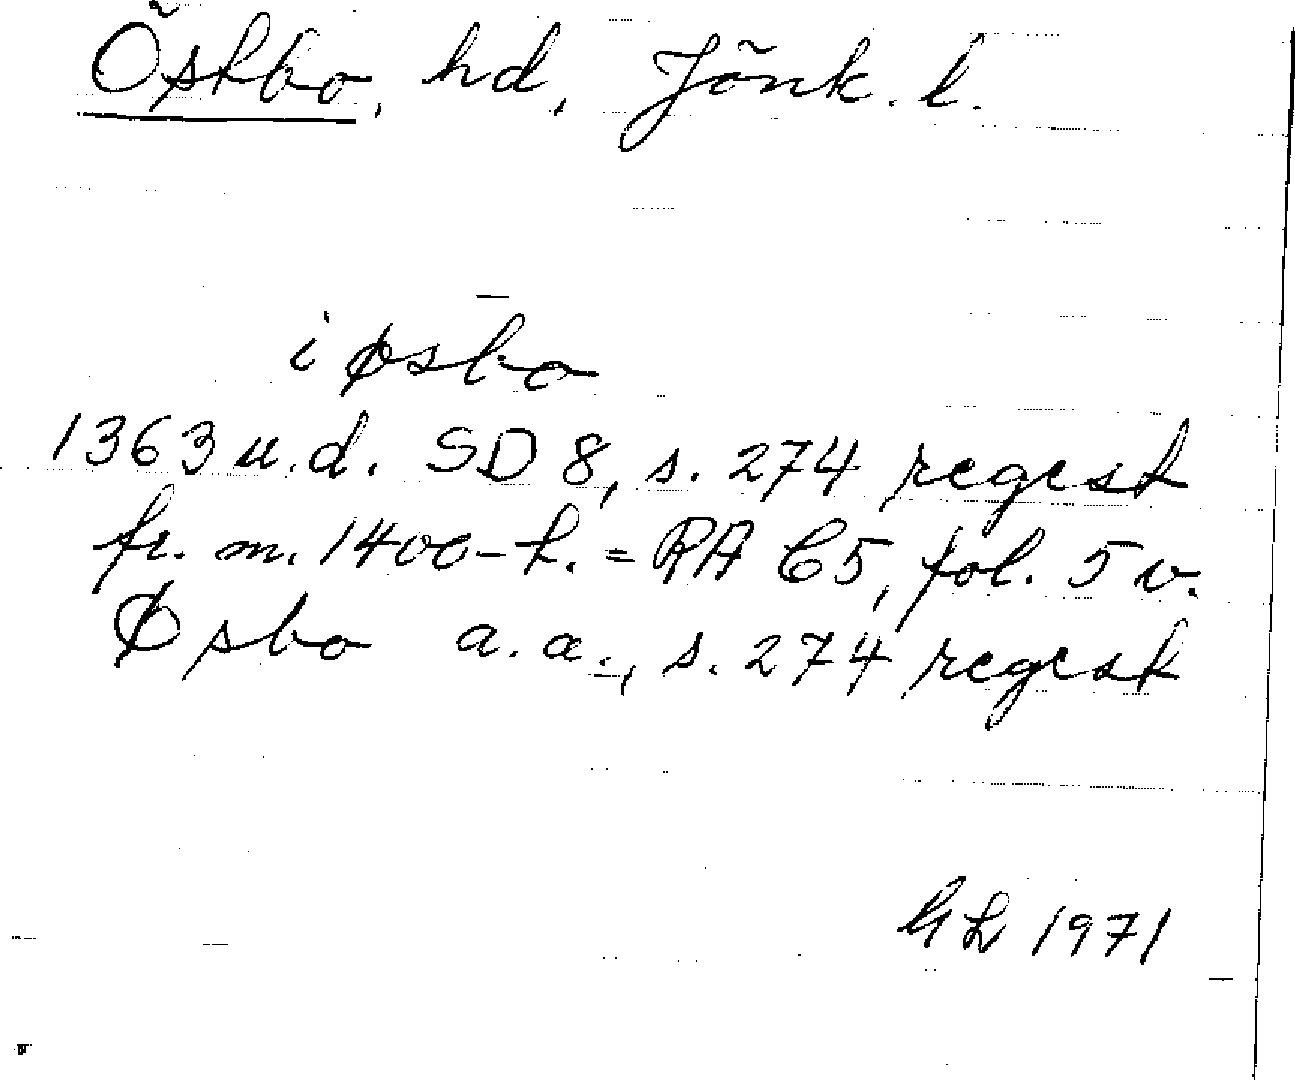 Östbo, hd, Jönk. l.
i øsbo
1363 u.d. SD 8, s. 274 regest
fr. m. 1400-t. = RA C5, fol. 5 v.
Øsbo a. a., s. 274 regest
1971